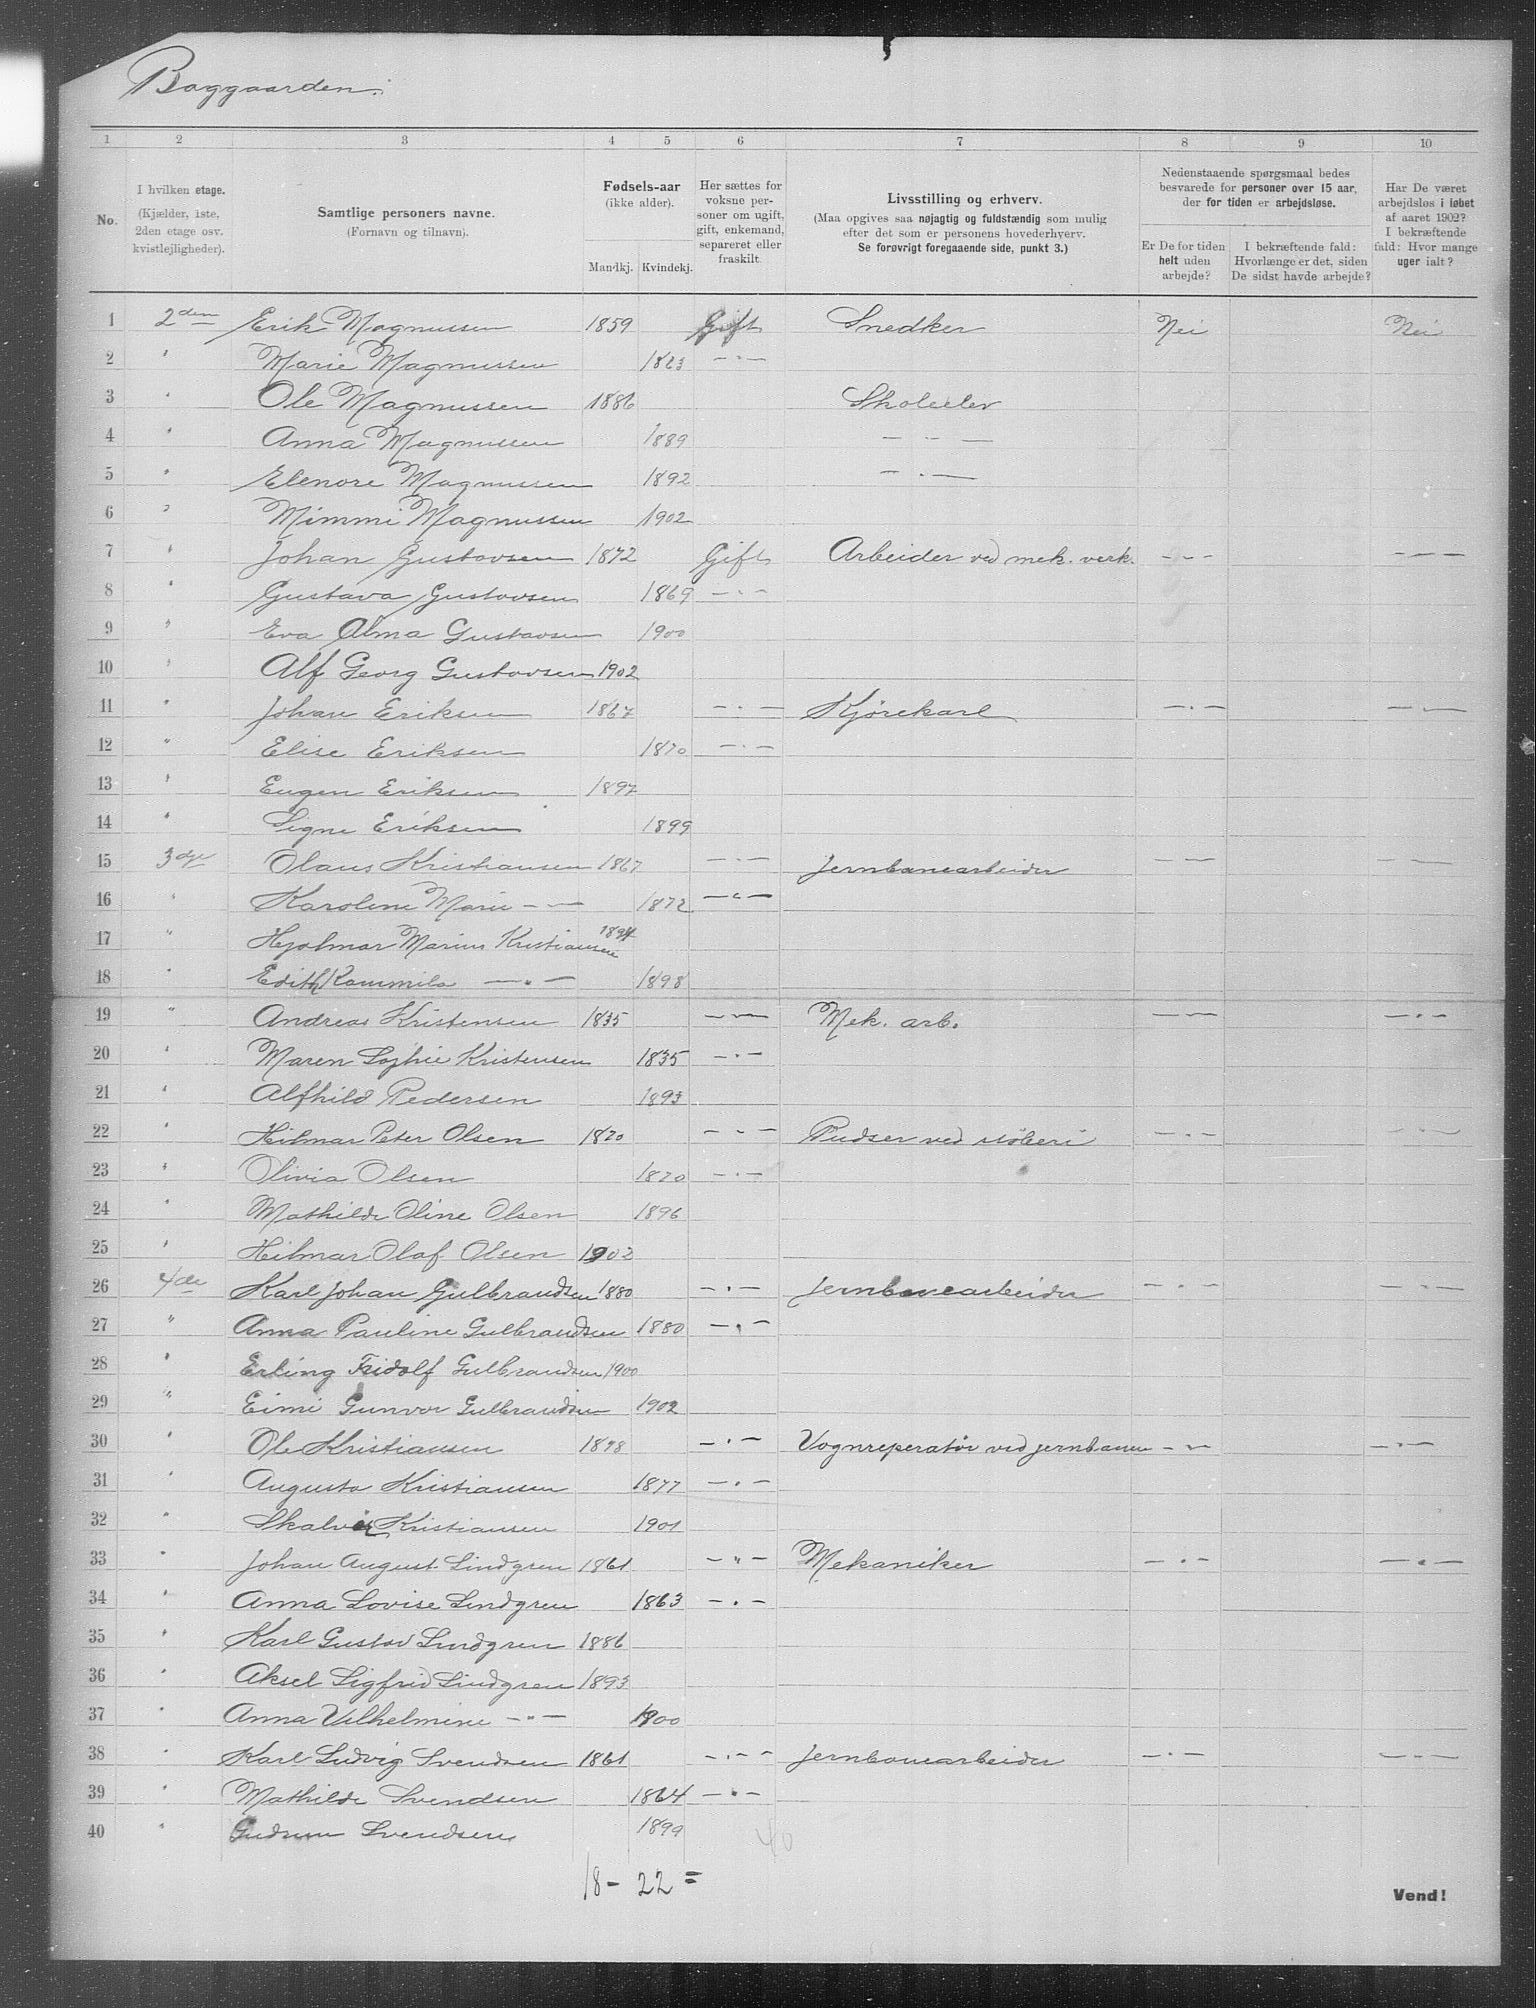 Baggaarden.
1 2 3 4 5 6 7 8 9 10
No.
I hvilken etage. (Kjælder, 1ste, 2den etage osv. kvistlejligheder).
Samtlige personers navne. (Fornavn og tilnavn).
Fødsels-aar (ikke alder). Mandkj. Kvindekj.
Her sættes for voksne personer om ugift, gift, enkemand, separeret eller fraskilt.
Livsstilling og erhverv. (Maa opgives saa nøjagtig og fuldstændig som mulig efter det som er personens hovederhverv. Se forøvrigt foregaaende side, punkt 3.)
Nedenstaaende spørgsmaal bedes besvarede for personer over 15 aar, der for tiden er arbejdsløse.
Er De for tiden helt uden arbejde?
I bekræftende fald: Hvorlænge er det, siden De sidst havde arbejde?
Har De været arbejdsløs i løbet af aaret 1902? I bekræftende fald: Hvor mange uger ialt?
1 2den Erik Magnussen 1859 Gift Snedker Nei Nei
2 " Marie Magnussen 1863 - " -
3 " Ole Magnussen 1886 Skoleelev
4 " Anna Magnussen 1889 - " -
5 " Elenore Magnussen 1892 - " -
6 " Mimmi Magnussen 1902
7 " Johan Gustavsen 1872 Gift Arbeider ved mek. verk. - " - - " -
8 " Gustava Gustavsen 1869 - " -
9 " Eva Alma Gustavsen 1900
10 " Alf Georg Gustavsen 1902
11 " Johan Eriksen 1867 - " - Kjørekarl - " - - " -
12 " Elise Eriksen 1870 - " -
13 " Eugen Eriksen 1897
14 " Signe Eriksen 1899
15 3dje Olaus Kristiansen 1867 - " - Jernbanearbeider - " - - " -
16 " Karoline Marie - " - 1872 - " -
17 " Hjalmar Marius Kristiansen 1894
18 " Edith Kammila - " - 1898
19 " Andreas Kristensen 1835 - " - Mek. arb. - " - - " -
20 " Maren Sophie Kristensen 1835 - " -
21 " Alfhild Pedersen 1893
22 " Hilmar Peter Olsen 1870 - " - Pudser ved støberi - " - - " -
23 " Olivia Olsen 1870 - " -
24 " Mathilde Oline Olsen 1896
25 " Hilmar Olaf Olsen 1902
26 4de Karl Johan Gulbrandsen 1880 - " - Jernbanearbeider - " - - " -
27 " Anna Pauline Gulbrandsen 1880 - " -
28 " Erling Fridolf Gulbrandsen 1900
29 " Eimi Gunvor Gulbrandsen 1902
30 " Ole Kristiansen 1878 - " - Vognreperatør ved jernbanen - " - - " -
31 " Augusta Kristiansen 1877 - " -
32 " Kristiansen 1901
33 " Johan August Lindgren 1861 - " - Mekaniker - " - - " -
34 " Anna Lovise Lindgren 1863 - " -
35 " Karl Gustav Lindgren 1886
36 " Aksel Sigfrid Lindgren 1893
37 " Anna Vilhelmine - " - 1900
38 " Karl Ludvig Svendsen 1861 - " - Jernbanearbeider - " - - " -
39 " Mathilde Svendsen 1864 - " -
40 " Gudrun Svendsen 1899
40
18 - 22 =
Vend!